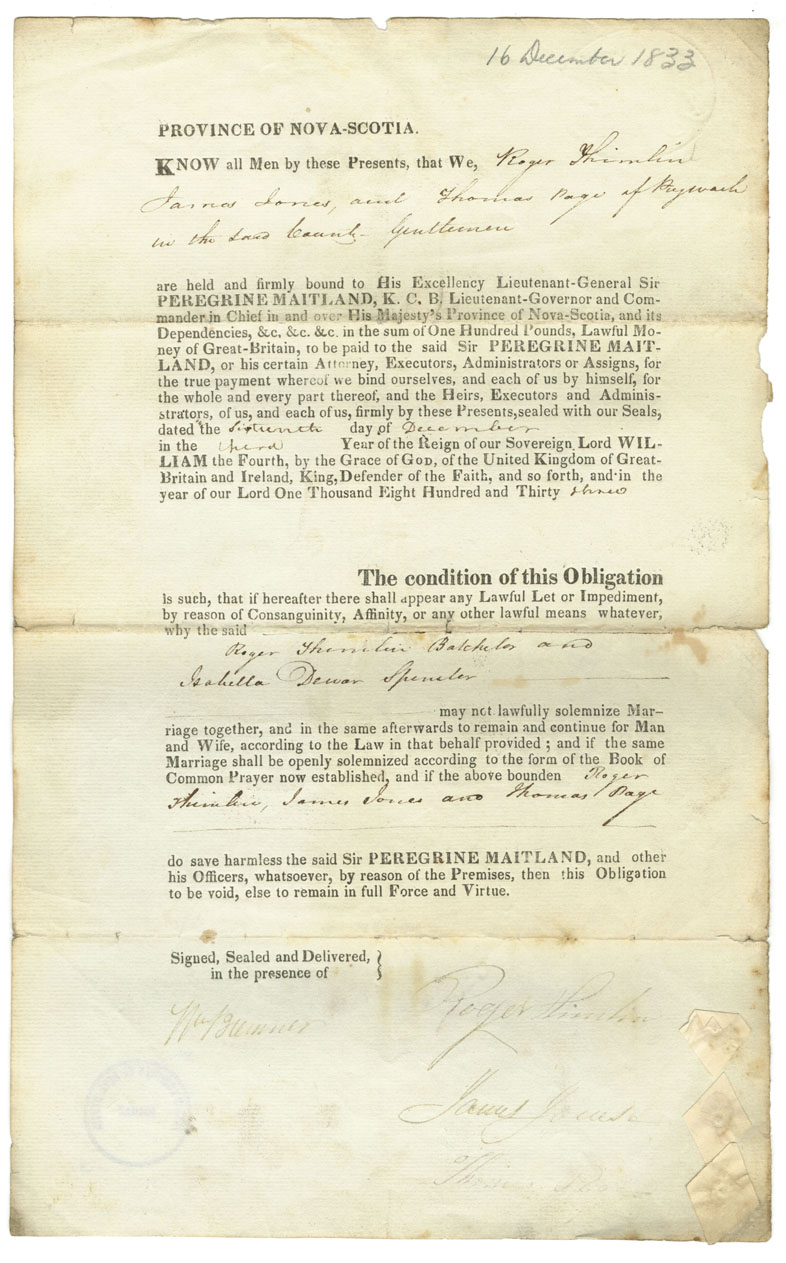 16 December 1833
PROVINCE OF NOVA-SCOTIA.
KNOW all Men by these Presents, that We, Roger Thimlin
James Jones, and Thomas Page of Pugwash
in the said County Gentlemen
are held and firmly bound to His Excellency Lieutenant-General Sir
PEREGRINE MAITLAND, K. C. B, Lieutenant-Governor and Com-
mander in Chief in and over His Majesty's Province of Nova-Scotia, and its
Dependencies, &c. &c. &c. in the sum of One Hundred Pounds, Lawful Mo-
ney of Great-Britain, to be paid to the said Sir PEREGRINE MAIT-
LAND, or his certain Attorney, Executors, Administrators or Assigns, for
the true payment whereof we bind ourselves, and each of us by himself, for
the whole and every part thereof, and the Heirs, Executors and Adminis-
strators, of us, and each of us, firmly by these Presents, sealed with our Seals,
dated the Sixteenth day of December
in the third Year of the Reign of our Sovereign Lord WIL-
LIAM the Fourth, by the Grace of GOD, of the United Kingdom of Great-
Britain and Ireland, King, Defender of the Faith, and so forth, and in the
year of our Lord One Thousand Eight Hundred and Thirty three
The condition of this Obligation
is such, that if hereafter there shall appear any Lawful Let or Impediment,
by reason of Consanguinity, Affinity, or any other lawful means whatever,
why the said
Roger Thimlin Batchelor and
Isabella Dewar Spinster
may not lawfully solemnize Mar-
riage together, and in the same afterwards to remain and continue for Man
and Wife, according to the Law in that behalf provided ; and if the same
Marriage shall be openly solemnized according to the form of the Book of
Common Prayer now established, and if the above bounden Roger
Thimlin, James Jones and Thomas Page
do save harmless the said Sir PEREGRINE MAITLAND, and other
his Officers, whatsoever, by reason of the Premises, then this Obligation
to be void, else to remain in full Force and Virtue.
Signed, Sealed and Delivered,
in the presence of
Roger Thimlin
James Jones
Thomas